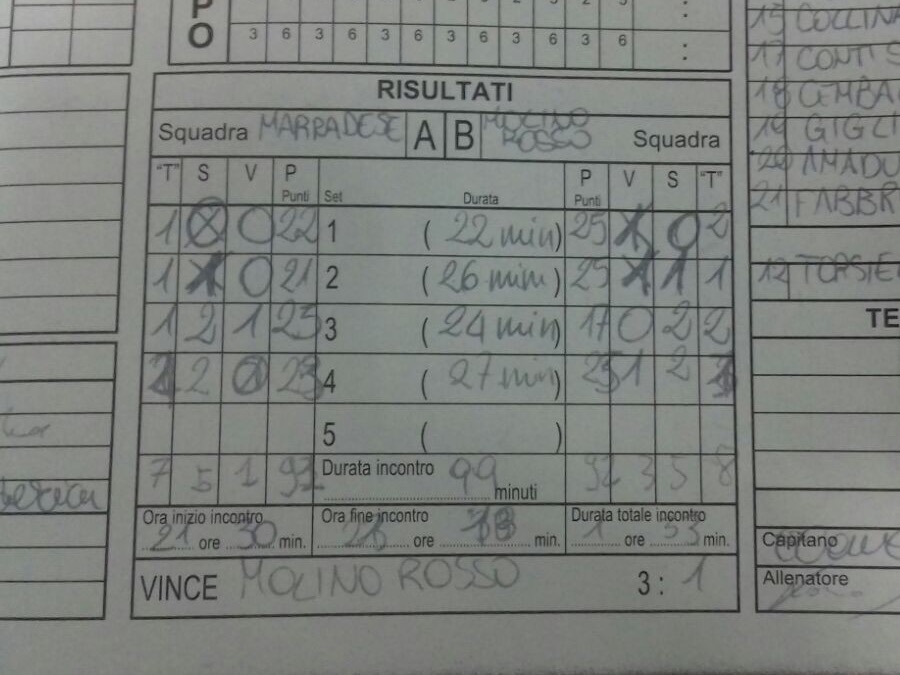 P
O 3 6 3 6 3 6 3 6 3 6 3 6 :
RISULTATI
Squadra MARRADESE A B MOLINO ROSSO Squadra
"T" S V P Punti Set Durata P Punti V S "T"
1 0 22 1 ( 22 min) 25 1 0 2
1 1 0 21 2 ( 26 min) 25 1 1 1
1 2 1 25 3 ( 24 min) 17 0 2 2
2 23 4 ( 27 min) 25 1 2
5 ( )
7 5 1 Durata incontro 99 minuti 92 3 5 8
Ora inizio incontro 21 ore 30 min. Ora fine incontro ore min. Durata totale incontro 1 ore min.
VINCE MOLINO ROSSO 3 : 1
15 COLLINA
17 CONTI S
18 CEMBA
19 GIGLI
20 AMADU
21 FABBR
12
TE
Capitano
Allenatore